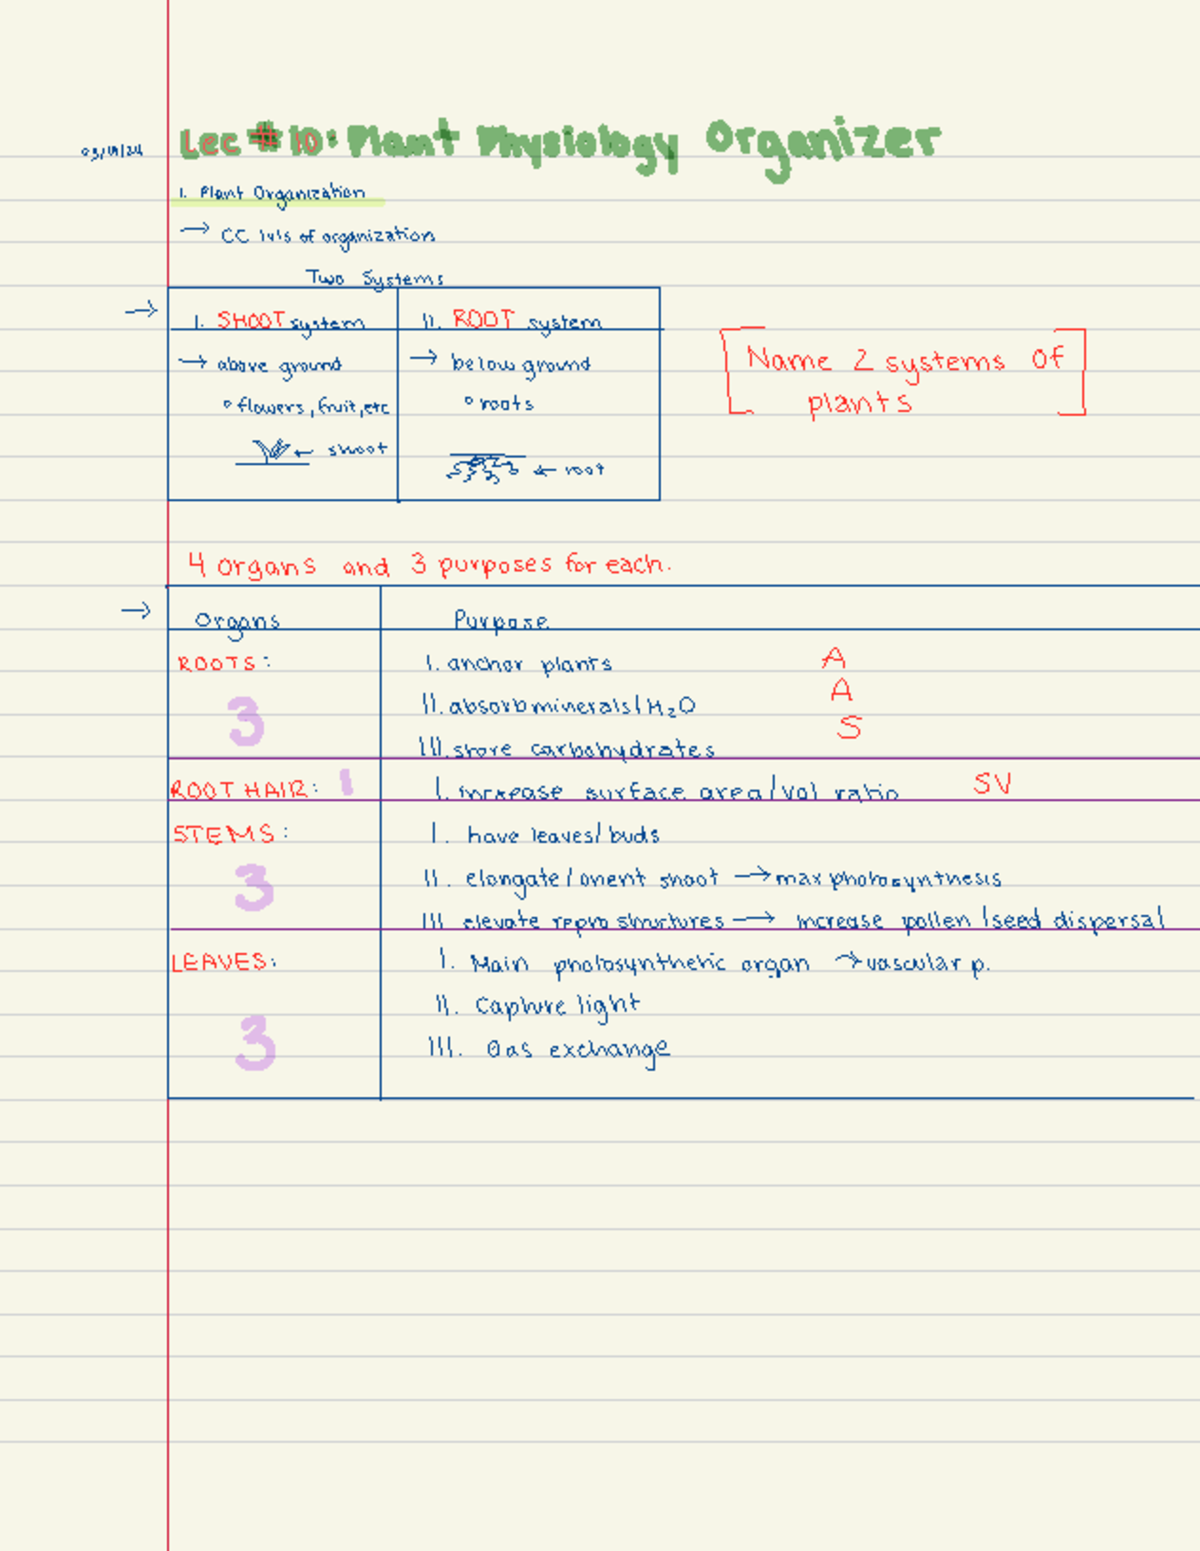 Lec #10: Plant Physiology Organizer
I. Plant Organization
→ CC lvls of organization
Two Systems
→ I. SHOOT system II. ROOT system
→ above ground → below ground
Name 2 systems of plants
° flowers, fruit, etc ° roots
← shoot
← root
4 organs and 3 purposes for each.
→ Organs Purpose
ROOTS: I. anchor plants A
3 II. absorb minerals/H₂O A
III. store carbohydrates S
ROOT HAIR: 1 I. increase surface area/vol ratio SV
STEMS: I. have leaves/buds
3 II. elongate/orient shoot → max photosynthesis
III elevate repro structures → increase pollen/seed dispersal
LEAVES: I. Main photosynthetic organ → vascular p.
II. Capture light
3 III. Gas exchange